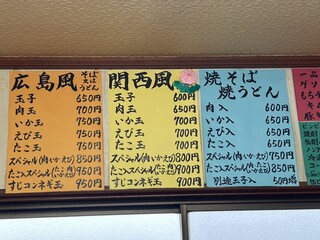 広島風 そば又はうどん
玉子 650円
肉玉 700円
いか玉 750円
えび玉 750円
たこ玉 750円
スペシャル(肉いかえび) 850円
たこ入スペシャル 950円
すじコンネギ玉 950円
関西風
玉子 600円
肉玉 650円
いか玉 700円
えび玉 700円
たこ玉 700円
スペシャル(肉いかえび) 800円
たこ入スペシャル 900円
すじコンネギ玉 900円
焼そば
焼うどん
肉入 600円
いか入 650円
えび入 650円
たこ入 650円
スペシャル(肉いかえび) 750円
たこ入スペシャル 850円
別途玉子入 50円増
一品